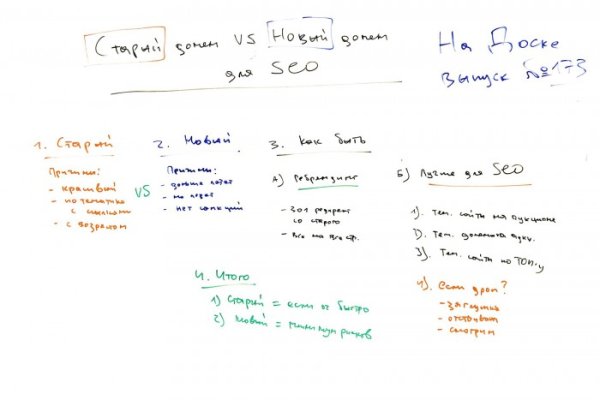 Старый домен VS Новый домен
для SEO
На Доске
выпуск №173
1. Старый
Причины:
- красивый
- по тематике
с ссылками
- с возрастом
VS
2. Новый
Причины:
- дольше
- не
- нет санкций
3. Как быть
А) Ребрендинг
- 301 редирект
со старого
- Все на все стр.
Б) Лучше для SEO
1). Тем. сайты на аукционе
2). Тем. домены аукц.
3). Тем. сайты по ТОП-у
4). если дроп?
- загрузить
- отстоять
- смотрим
4. Итого
1) Старый = если оч быстро
2) Новый = минимум рисков